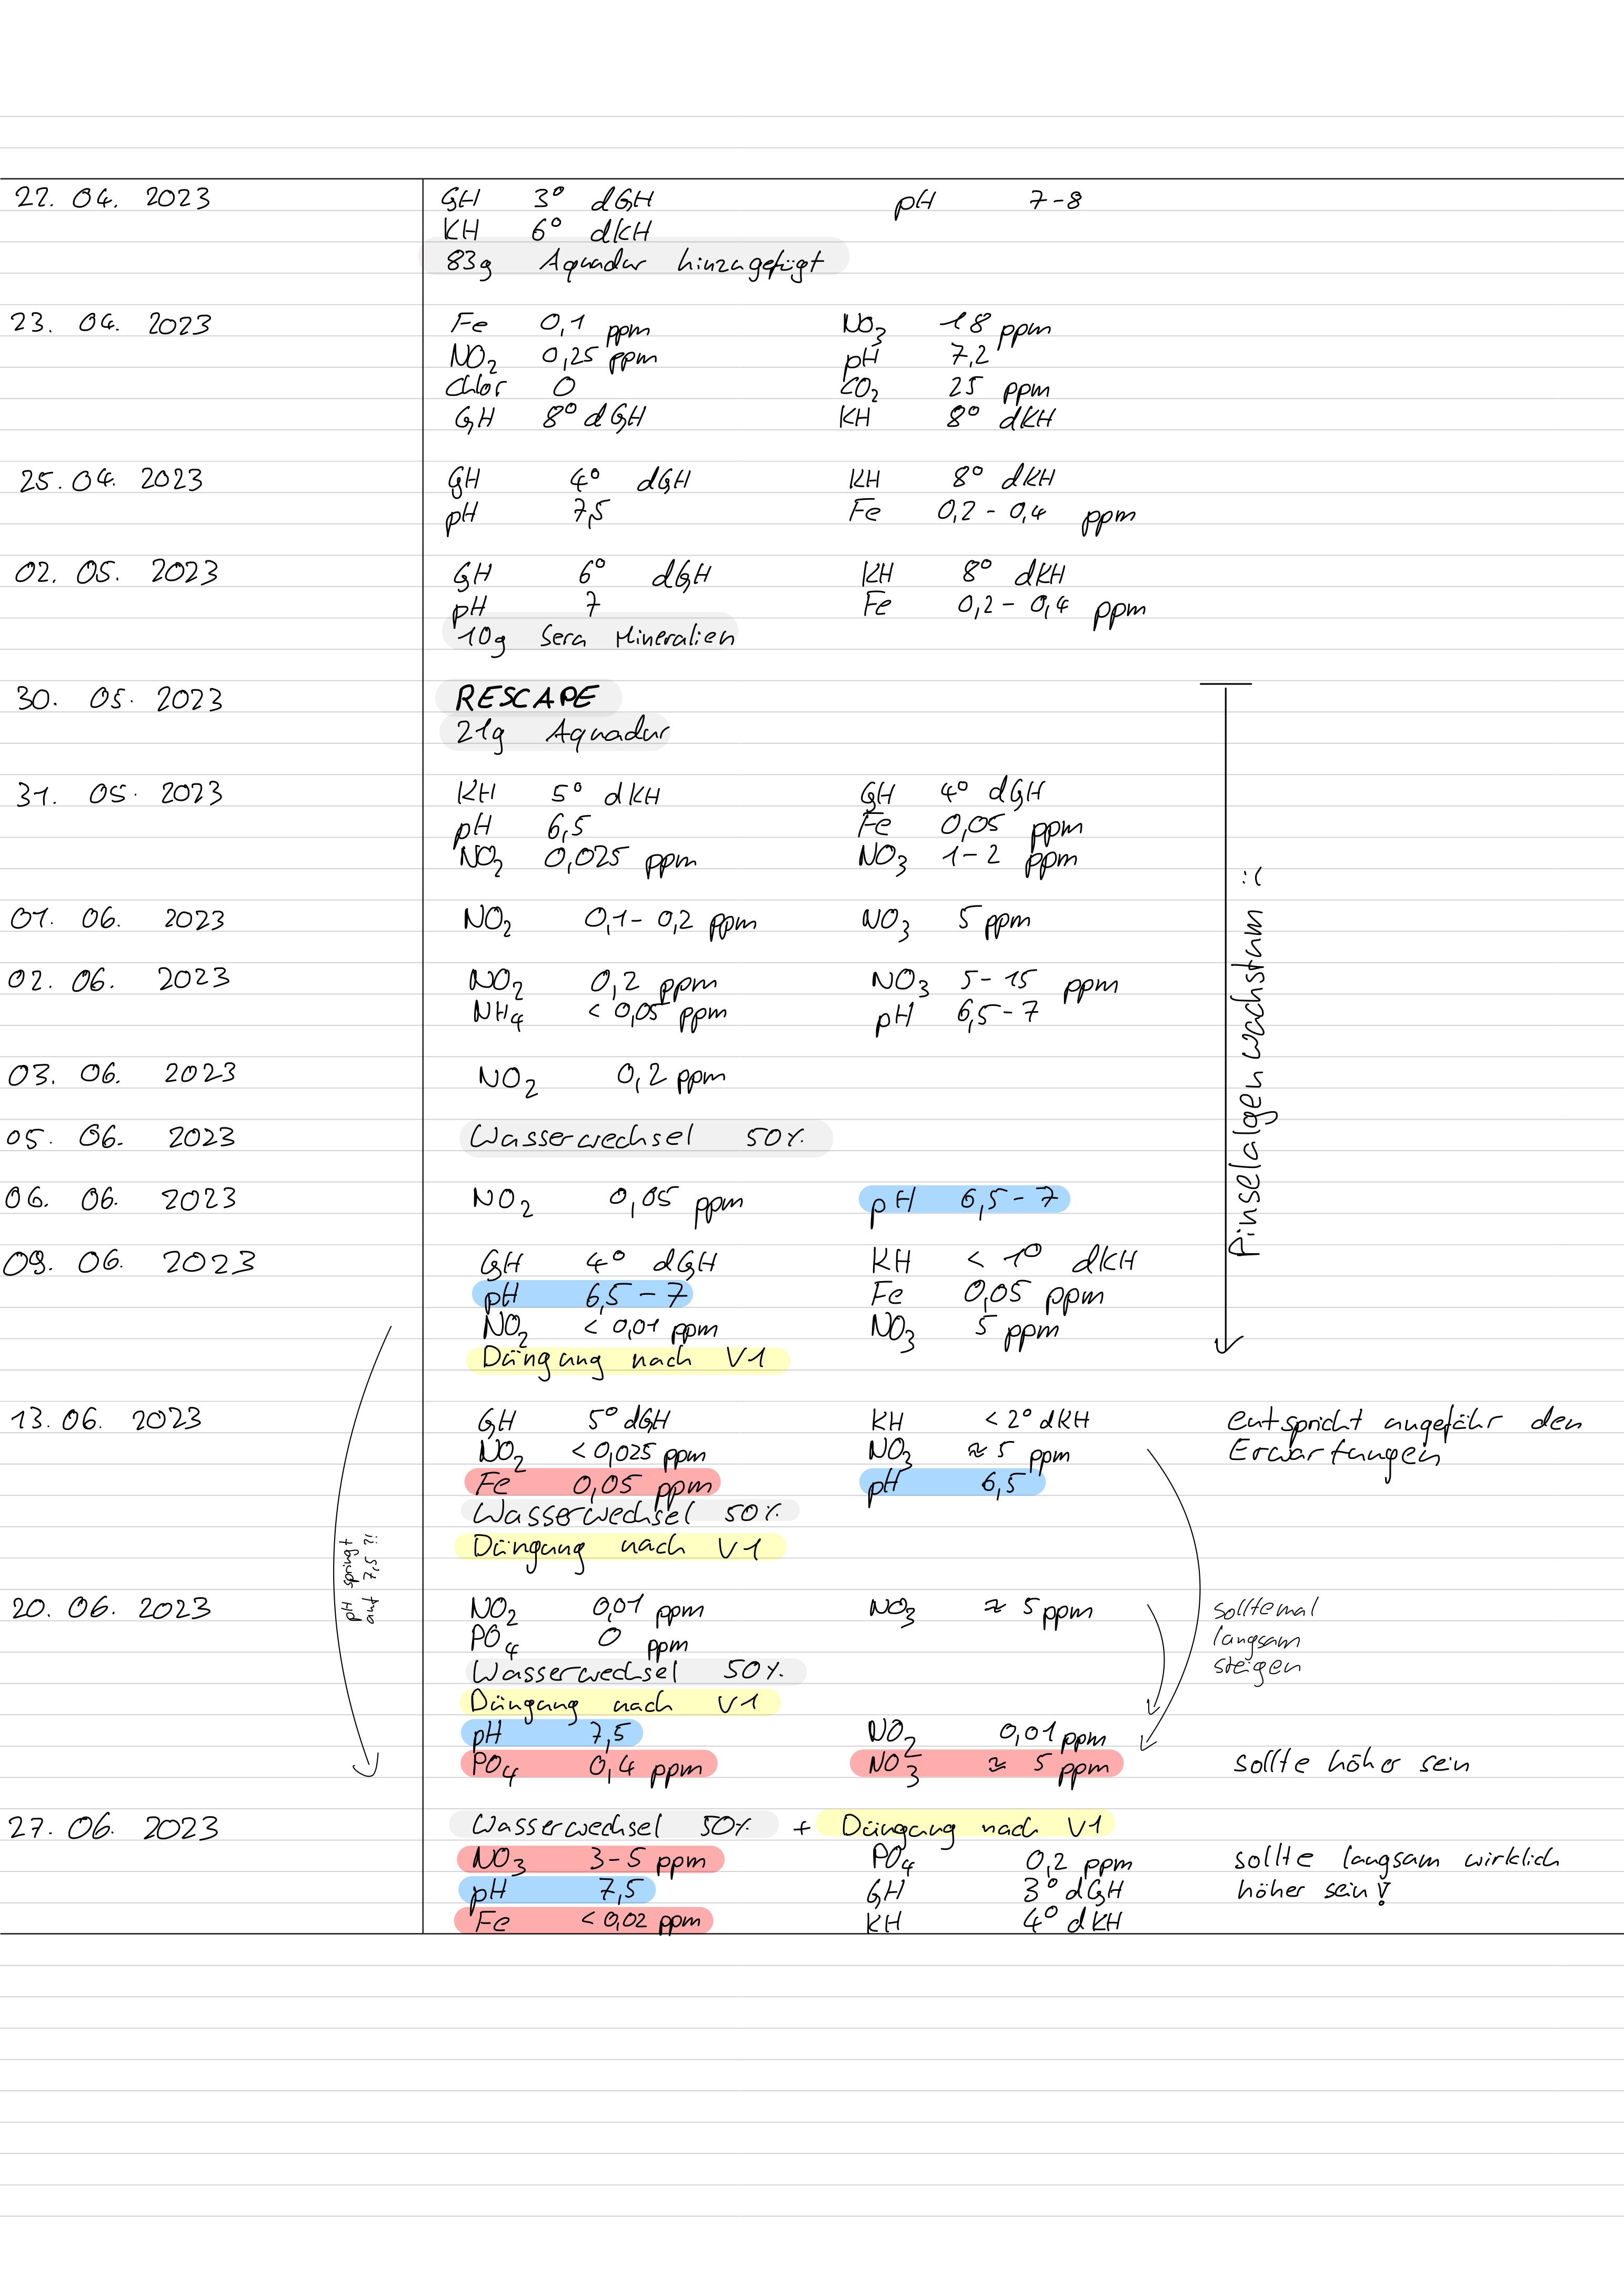 22. 04. 2023 GH 3° dGH pH 7-8
KH 6° dKH
83g Aquadur hinzugefügt
23. 04. 2023 Fe 0,1 ppm NO3 18 ppm
NO2 0,25 ppm pH 7,2
Chlor 0 CO2 25 ppm
GH 8° dGH KH 8° dKH
25. 04. 2023 GH 4° dGH KH 8° dKH
pH 7,5 Fe 0,2 - 0,4 ppm
02. 05. 2023 GH 6° dGH KH 8° dKH
pH 7 Fe 0,2 - 0,4 ppm
10g Sera Mineralien
30. 05. 2023 RESCAPE
21g Aquadur
31. 05. 2023 KH 5° dKH GH 4° dGH
pH 6,5 Fe 0,05 ppm
NO2 0,025 ppm NO3 1-2 ppm
01. 06. 2023 NO2 0,1 - 0,2 ppm NO3 5 ppm
02. 06. 2023 NO2 0,2 ppm NO3 5 - 15 ppm
NH4 < 0,05 ppm pH 6,5 - 7
03. 06. 2023 NO2 0,2 ppm
05. 06. 2023 Wasserwechsel 50%
06. 06. 2023 NO2 0,05 ppm pH 6,5 - 7
Pinselalgenwachstum :(
09. 06. 2023 GH 4° dGH KH < 1° dKH
pH 6,5 - 7 Fe 0,05 ppm
NO2 < 0,01 ppm NO3 5 ppm
Düngung nach V1
13. 06. 2023 GH 5° dGH KH < 2° dKH entspricht ungefähr den
NO2 < 0,025 ppm NO3 ≈ 5 ppm Erwartungen
Fe 0,05 ppm pH 6,5
Wasserwechsel 50%
Düngung nach V1
pH springt
auf 7,5 ?!
20. 06. 2023 NO2 0,01 ppm NO3 ≈ 5 ppm sollte mal
PO4 0 ppm langsam
Wasserwechsel 50% steigen
Düngung nach V1
pH 7,5 NO2 0,01 ppm
PO4 0,4 ppm NO3 ≈ 5 ppm sollte höher sein
27. 06. 2023 Wasserwechsel 50% + Düngung nach V1
NO3 3-5 ppm PO4 0,2 ppm sollte langsam wirklich
pH 7,5 GH 3° dGH höher sein!
Fe < 0,02 ppm KH 4° dKH